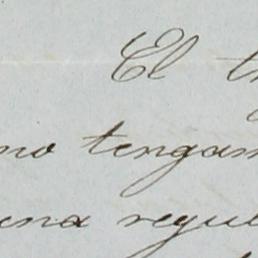 El
no tengam
una regul